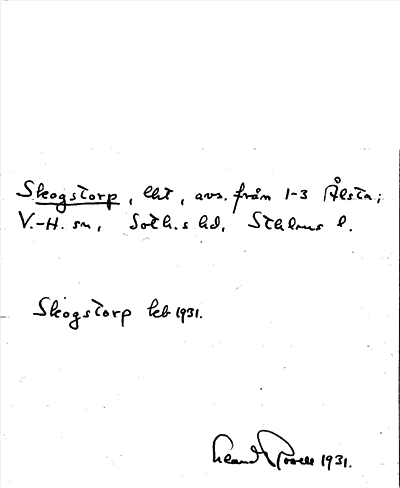 Skogstorp, lht, avs. från 1-3 Ålsta;
V.-H. sn, Soth.s hd, Sthlms l.
Skogstorp keb 1931.
1931.